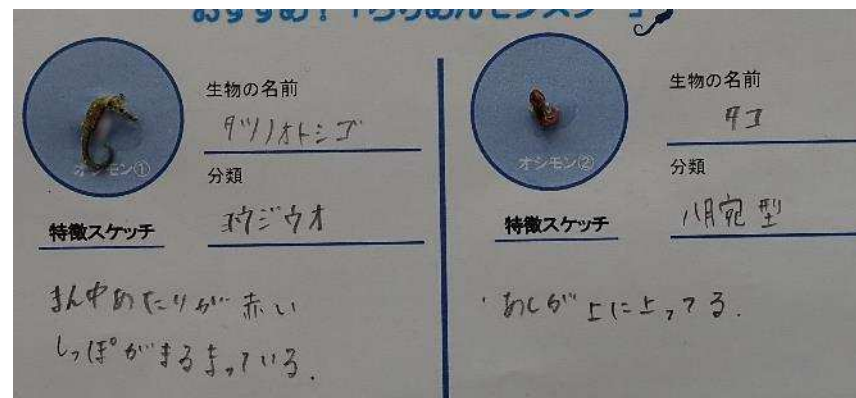 おすすめ！「ちりめんモンスター」
オシモン①
生物の名前
タツノオトシゴ
分類
ヨウジウオ
特徴スケッチ
まん中あたりが赤い
しっぽがまるまっている.
オシモン②
生物の名前
タコ
分類
八腕型
特徴スケッチ
あしが上に上ってる.